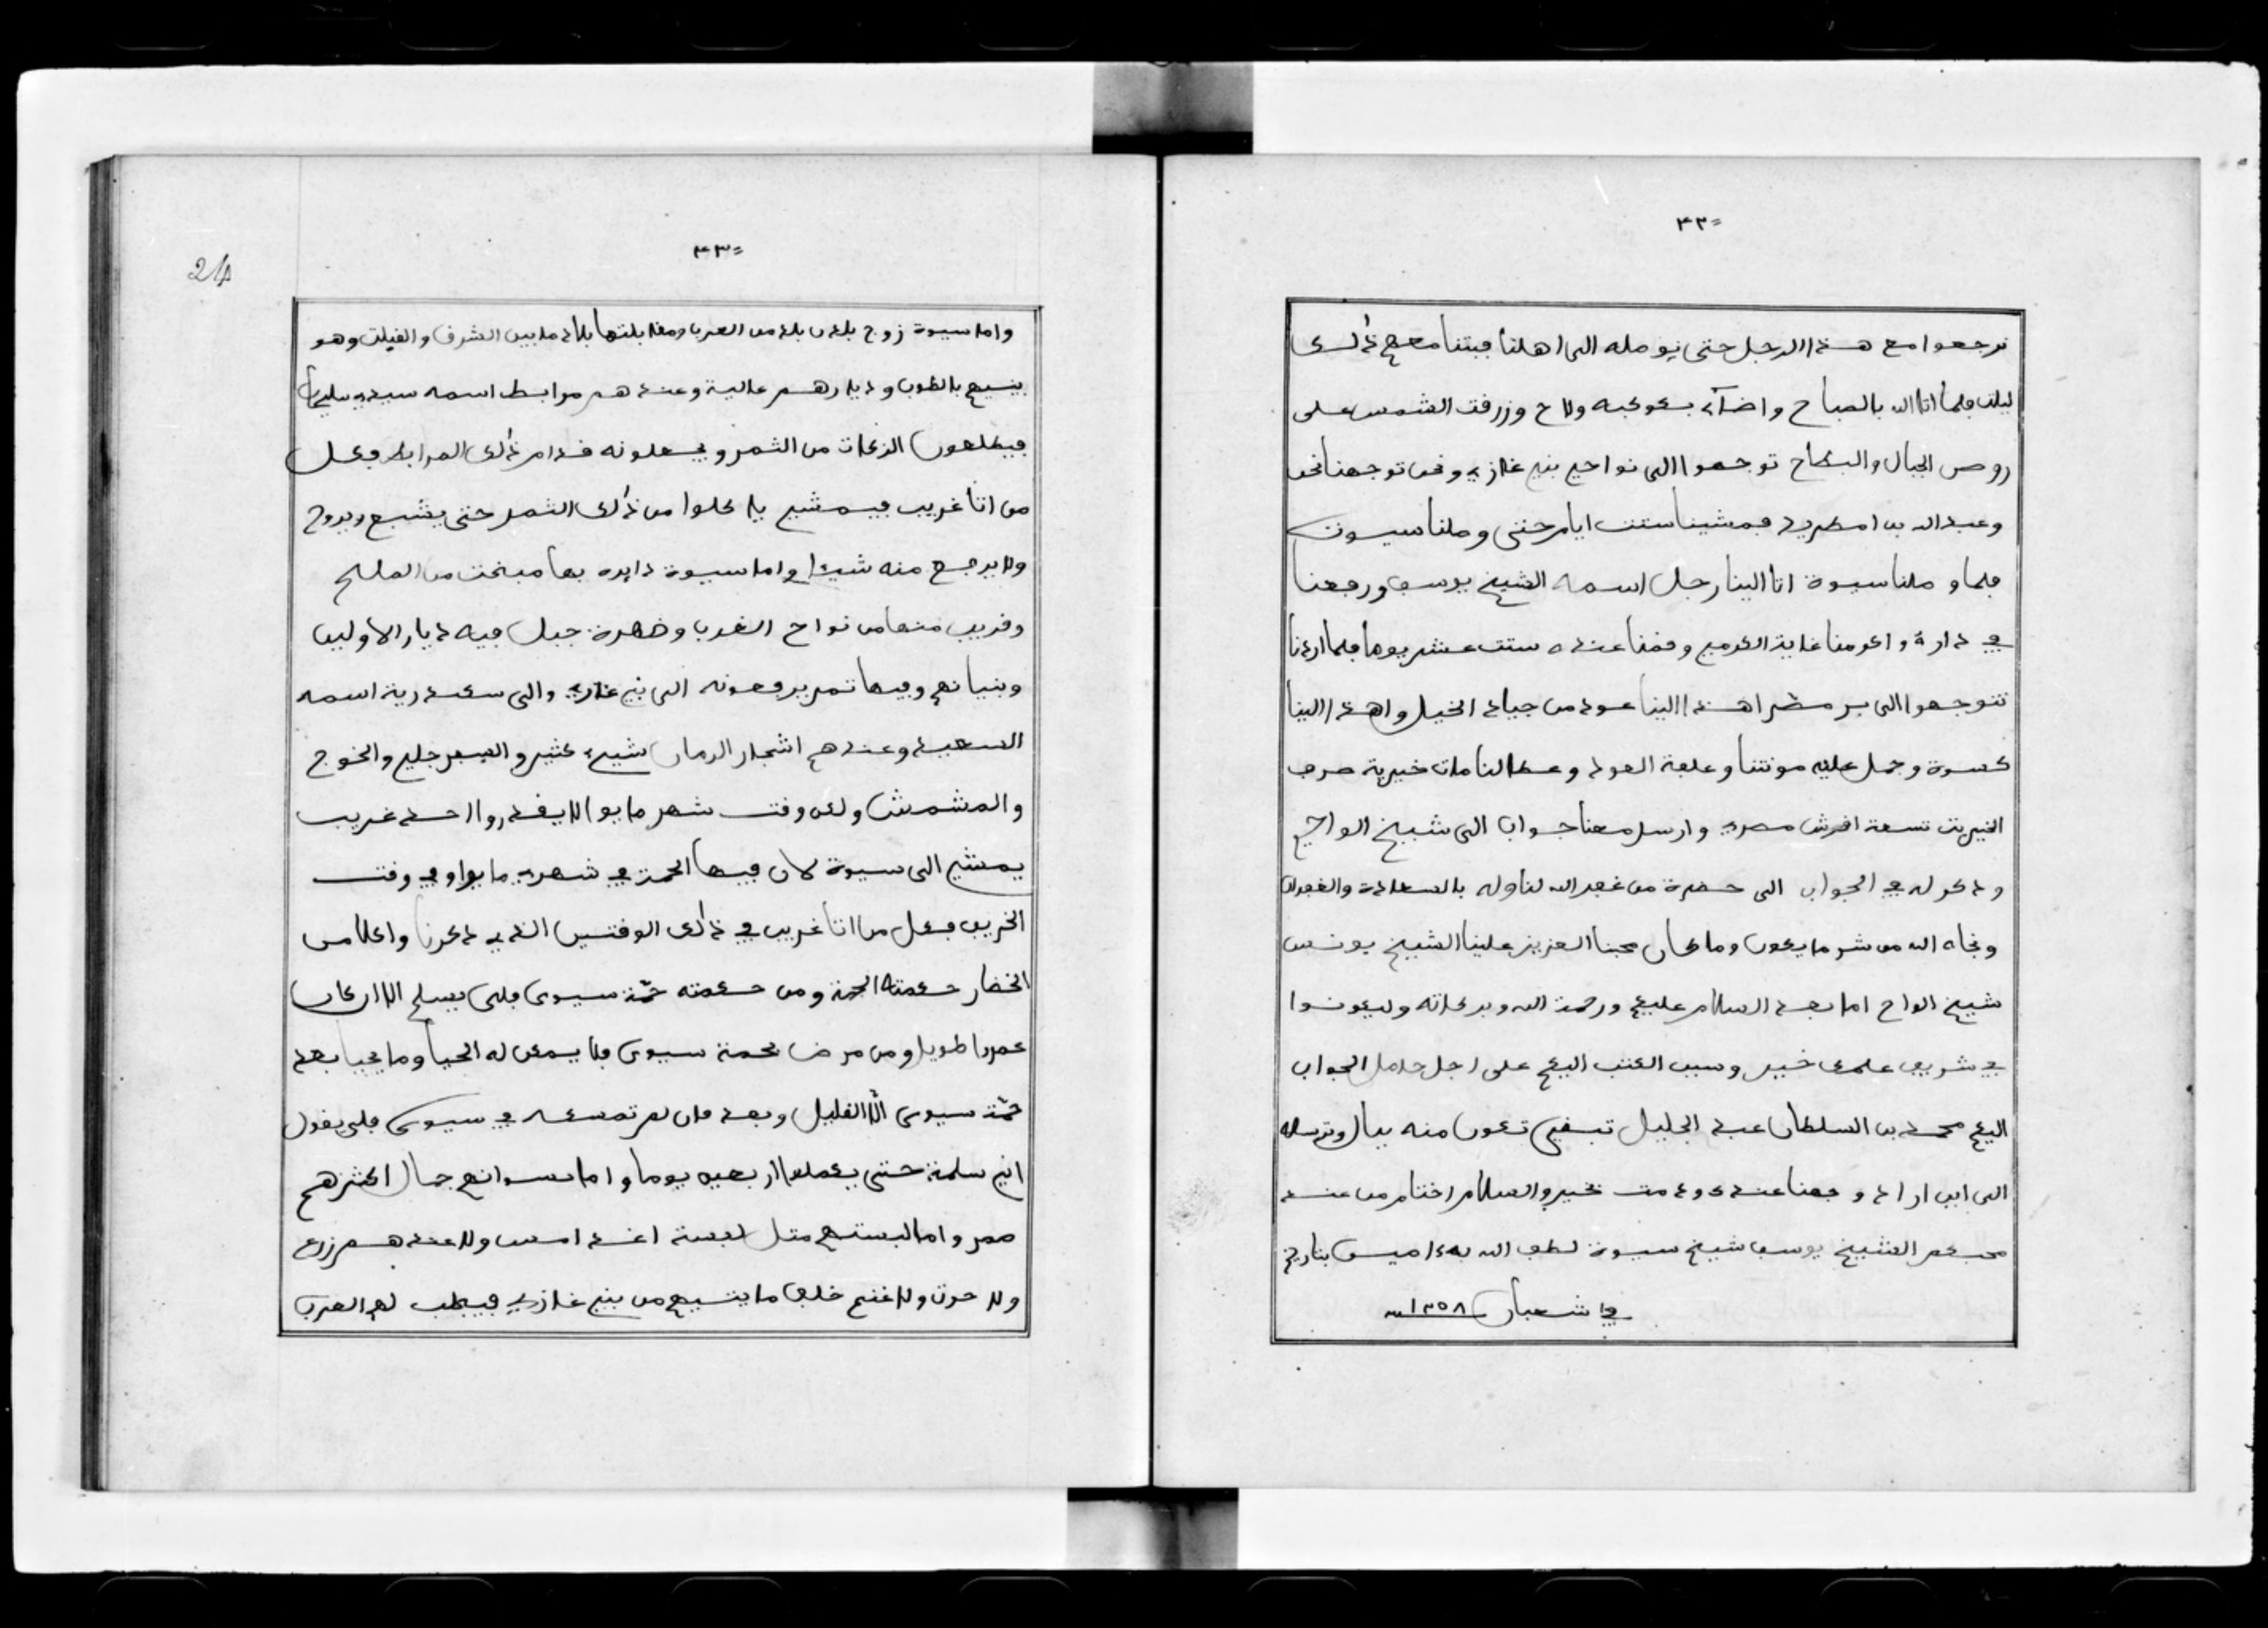 ٣٢=
نرجعوا مع هذا الرجل حتى نوصله الى اهلنا فبتنا معهم ذٰلك
ليلت فلما اتا الله بالصباح واضاء بكوكبه ولاح وزرقت الشمس على
روص الجبال والبطاح توجهوا الى نواحي بني غازي ونحن توجهنا نحن
وعبد الله بن امطريد فمشينا ستت ايام حتى وصلنا سيوت
فلما وصلنا سيوة اتا الينا رجل اسمه الشيخ يوسف ورفعنا
في دارة واكرمنا غاية الكرمي وقمنا عنده ستت عشر يوما فلما اردنا
نتوجهوا الى بر مصر اهدا الينا عود من جياد الخيل واهدا الينا
كسوة وحمل عليه مونتنا وعلفة العود وعطا لنا مات خيرية صرف
الخيريت تسعة اقرش مصري وارسل معنا جواب الى شيخ الواحي
وذكر له في الجواب الى حضرة من غفر الله لنا وله بالسعادة والغفران
ونجاه الله من شر ما يكون وما كان محبنا العزيز علينا الشيخ يونس
شيخ الواح اما بعد السلام عليكم ورحمة الله وبركاته وليكونوا
في شريف علمك خير وسبب الكتب اليكم على اجل حامل الجواب
اليكم محمد بن السلطان عبد الجليل تبقي تكون منه ببال وترسله
الى اين اراد وجهنا عندك ودمت بخير والسلام اختام من عند
محبكم الشيخ يوسف شيخ سيوة لطف الله به ءاميس بتاريخ
في شعبان ١٢٥٨ سـ
٣٣=
24
واما سيوة زوج بلدن بلد من الغرب ومقابلتها بلاد ما بين الشرق والقبلت وهو
بنيهم بالطوب وديارهم عالية وعندهم مرابط اسمه سيدي سليمان
فيطلعون الزكات من التمر ويجعلونه قدام ذٰلك المرابط فكل
من اتا غريب فيمشي ياكلوا من ذٰلك التمر حتى يشبع ويروح
ولا يرجع منه شيئا واما سيوة دايره بها صبخت من الملح
وقريب منها من نواح الغرب وضهرة جبل فيه ديار الاولين
وبنيانهم وفيها تمر يرفعونه الى بني غازي والى سكندرية اسمه
السعيد وعندهم اشجار الرمان شيء كثير والسفرجلي والخوخ
والمشمش ولكن وقت شهر مايوا لا يقدروا احد غريب
يمشي الى سيوة لان فيها الحمة في شهري مايوا وفي وقت
الخريف فكل من اتا غريب في ذٰلك الوقتين الذي ذكرنا واكلا من
الخضار حكمته الحمة ومن حكمته حمّة سيوى فلن يسلم الا ان كان
عمره طويل ومن مرض بحمة سيوى فلا يمكن له الحيا وما يحيا بعد
حمّة سيوى الّا القليل وبعد فان لم تمسكه في سيوى فلن يقول
اني سلمة حتى يكملها اربعين يوما واما نسوانهم جمال اكثرهم
صمر واما لبستهم متل لبسة اغدامس ولا عندهم زرع
ولا حرث ولا غنم خلاف ما يتيهم من بني غازي فيطلب لهم العرب